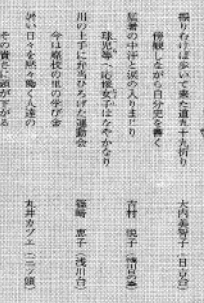 振りむけば歩いて来た道九十九折り
傍観しながら自分史を書く
大内美智子（日の台）
猛暑の中汗と涙の入りまじり
球児等へ応援女子はなやかなり
吉村 悦子
川の土手に弁当ひろげた運動会
今は廃校の里の学び舎
篠崎 恵子（浅川台）
暑い日々を黙々働く人達の
その貴さに頭が下がる
丸井カブエ（三ツ頭）